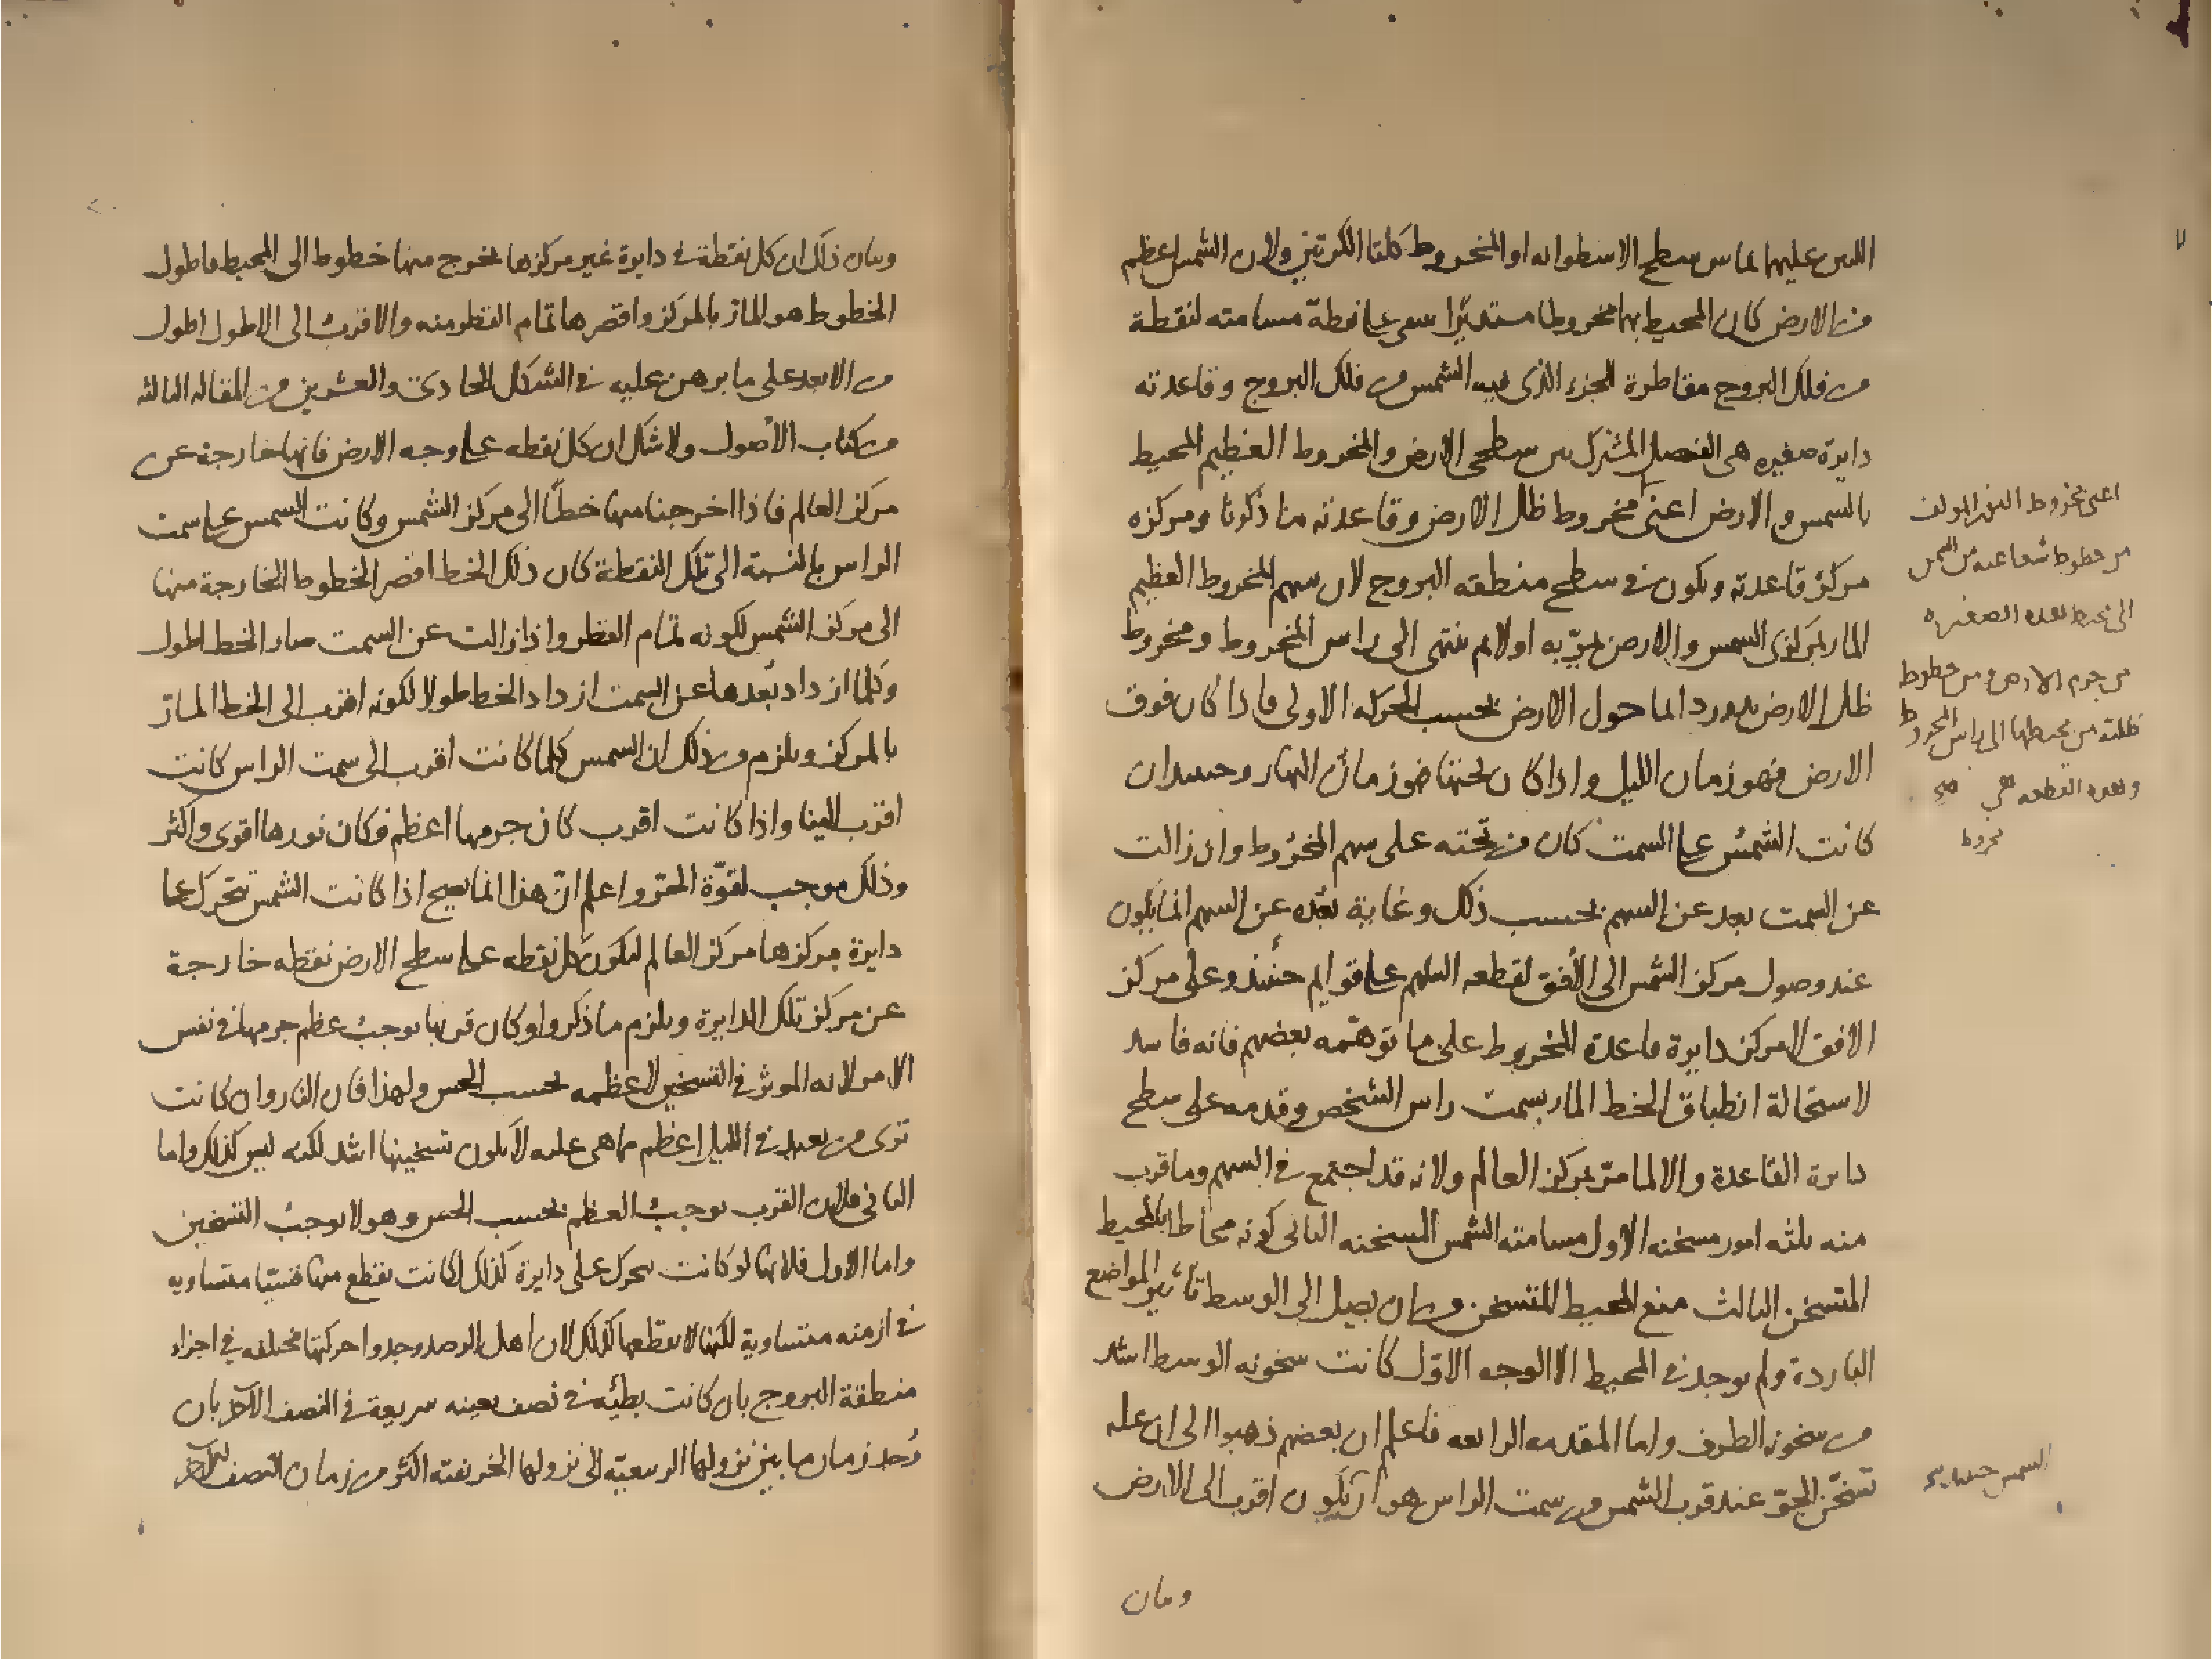 اللس عليها يماس سطح الاسطوانه او المخروط كلتا الكرتين ولان الشمس اعظم
من الارض كان المحيط بها مخروطا مستديرا على نقطة مسامته لنقطة
من فلك البروج مقاطرة للجزء الذي فيه الشمس من فلك البروج وقاعدته
دايرة صغيره هى الفصل المشترك بين سطحى الارض والمخروط العظيم المحيط
بالشمس والارض اعنى مخروط ظل الارض وقاعدته ما ذكرنا ومركزه
مركز قاعدته ويكون في سطح منطقه البروج لان سهم المخروط العظيم
المار بمركزى الشمس والارض يمر به اولا ثم ينتهى الى راس المخروط ومخروط
ظل الارض يدور دايما حول الارض بحسب الحركه الاولى فاذا كان فوق
الارض فهو زمان الليل واذا كان تحتها فهو زمان النهار وحينئذ ان
كانت الشمس على السمت كان من تحته على سهم المخروط وان زالت
عن السمت بعد عن السهم بحسب ذلك وغاية بعده عن السهم انما يكون
عند وصول مركز الشمس الى الافق لقطعه السهم على قوايم حينئذ وعلى مركز
الافق لا مركز دايرة قاعدة المخروط على ما توهمه بعضهم فانه فاسد
لاستحالة انطباق الخط المار بسمت راس الشخص وقدمه على سطح
دايرة القاعدة والا لما مر بمركز العالم ولانه قد اجتمع في السهم وما قرب
منه ثلثه امور مسخنه الاول مسامته الشمس المسخنه الثانى كونه محاطا بالمحيط
المتسخن الثالث منع المحيط المتسخن من ان يصل الى الوسط تاثير المواضع
الباردة ولم يوجد في المحيط الا الوجه الاول كانت سخونه الوسط اشد
من سخونه الطرف واما المقدمه الرابعه فاعلم ان بعضهم ذهبوا الى ان عله
تسخن الجو عند قرب الشمس من سمت الراس هو ان يكون اقرب الى الارض
وبيان
اعنى مخروط المولف
من خطوط شعاعيه من الشمس
الى محيط هذه الصغيره
من جرم الارض ومن خطوط
ظليه من محيطها الى راس المخروط
وهذه القطعه هي
مخروط
الشمس حينئذ
وبيان ذلك ان كل نقطة في دايرة غير مركزها يخرج منها خطوط الى المحيط فاطول
الخطوط هو المار بالمركز واقصرها تمام القطر منه والاقرب الى الاطول اطول
من الابعد على ما برهن عليه في الشكل الحادى والعشرين من المقاله الثالثه
من كتاب الاصول ولا شك ان كل نقطه على وجه الارض فانها خارجة عن
مركز العالم فاذا اخرجنا منها خطا الى مركز الشمس وكانت الشمس على سمت
الراس بالنسبة الى تلك النقطة كان ذلك الخط اقصر الخطوط الخارجة منها
الى مركز الشمس لكونه تمام القطر واذا زالت عن السمت صار الخط اطول
وكلما ازداد بعدها عن السمت ازداد الخط طولا لكونه اقرب الى الخط المار
بالمركز ويلزم من ذلك ان الشمس كلما كانت اقرب الى سمت الراس كانت
اقرب الينا واذا كانت اقرب كان جرمها اعظم فكان نورها اقوى واكثر
وذلك موجب لقوة الحر واعلم ان هذا انما يصح اذا كانت الشمس تتحرك على
دايرة مركزها مركز العالم ليكون كل نقطه على سطح الارض نقطه خارجة
عن مركز تلك الدايرة ويلزم ما ذكر او لو كان قربها يوجب عظم جرمها في نفس
الامر لانه الموثر في التسخين لا عظمه بحسب الحس ولهذا فان النار وان كانت
ترى من بعيد في الليل اعظم مما هى عليه لا يكون تسخينها اشد لكنه ليس كذلك واما
الثانى فلان القرب يوجب العظم بحسب الحس وهو لا يوجب التسخين
واما الاول فلانها لو كانت يتحرك على دايرة كذلك لكانت يقطع منها قسيا متساويه
في ازمنه متساوية لكنها لا يقطعها كذلك لان اهل الرصد وجدوا حركتها مختلفه في اجزاء
منطقة البروج بان كانت بطيئه في نصف بعينه سريعة في النصف الاخر بان
وجد زمان ما بين نزولها الربيعيه الى نزولها الخريفيه اكثر من زمان النصف الاخر